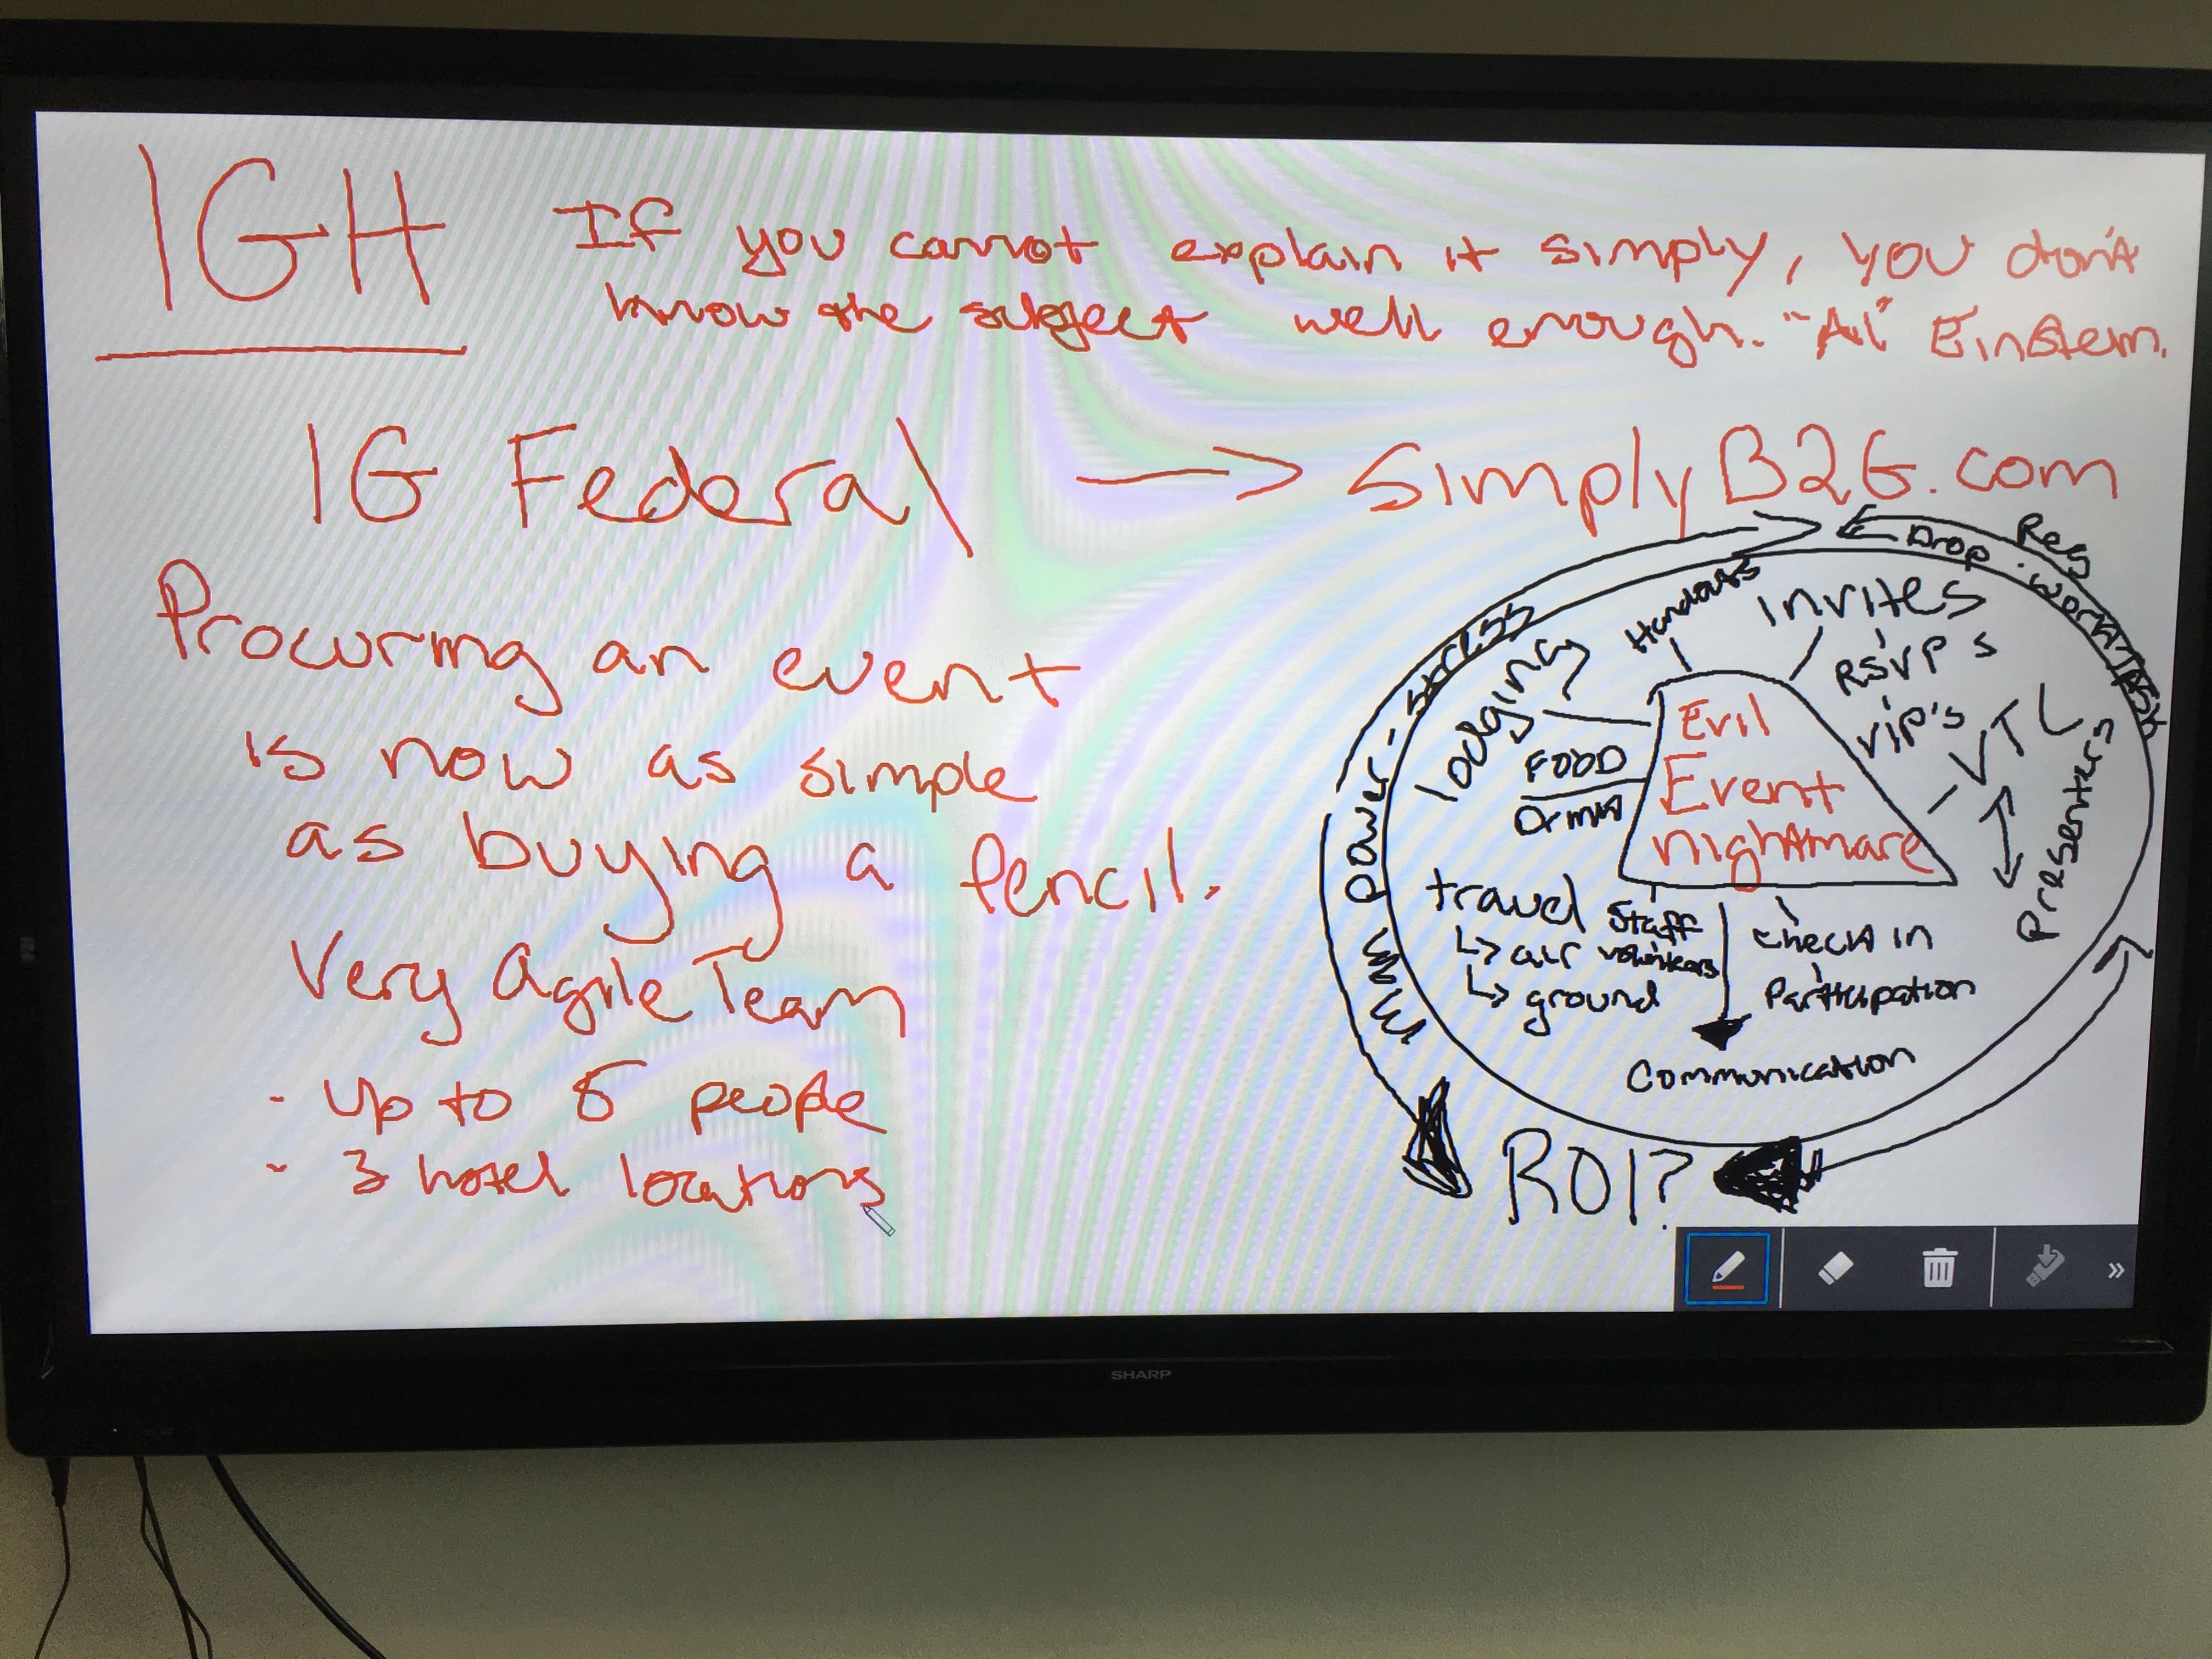 IGH
If you cannot explain it simply, you don't
know the subject well enough. "Al" Einstein.
IG Federal → SimplyB2G.com
Procuring an event
is now as simple
as buying a pencil.
Very Agile Team
- Up to 5 people
- 3 hotel locations
Evil
Event
nightmare
Handouts
Invites
RSVP's
VIP's
VTC
Presenters
lodging
FOOD
Drink
travel
↳ air
↳ ground
Staff
volunteers
Check in
Participation
Communication
power - stress
Reg
Drop
work
ROI?
SHARP